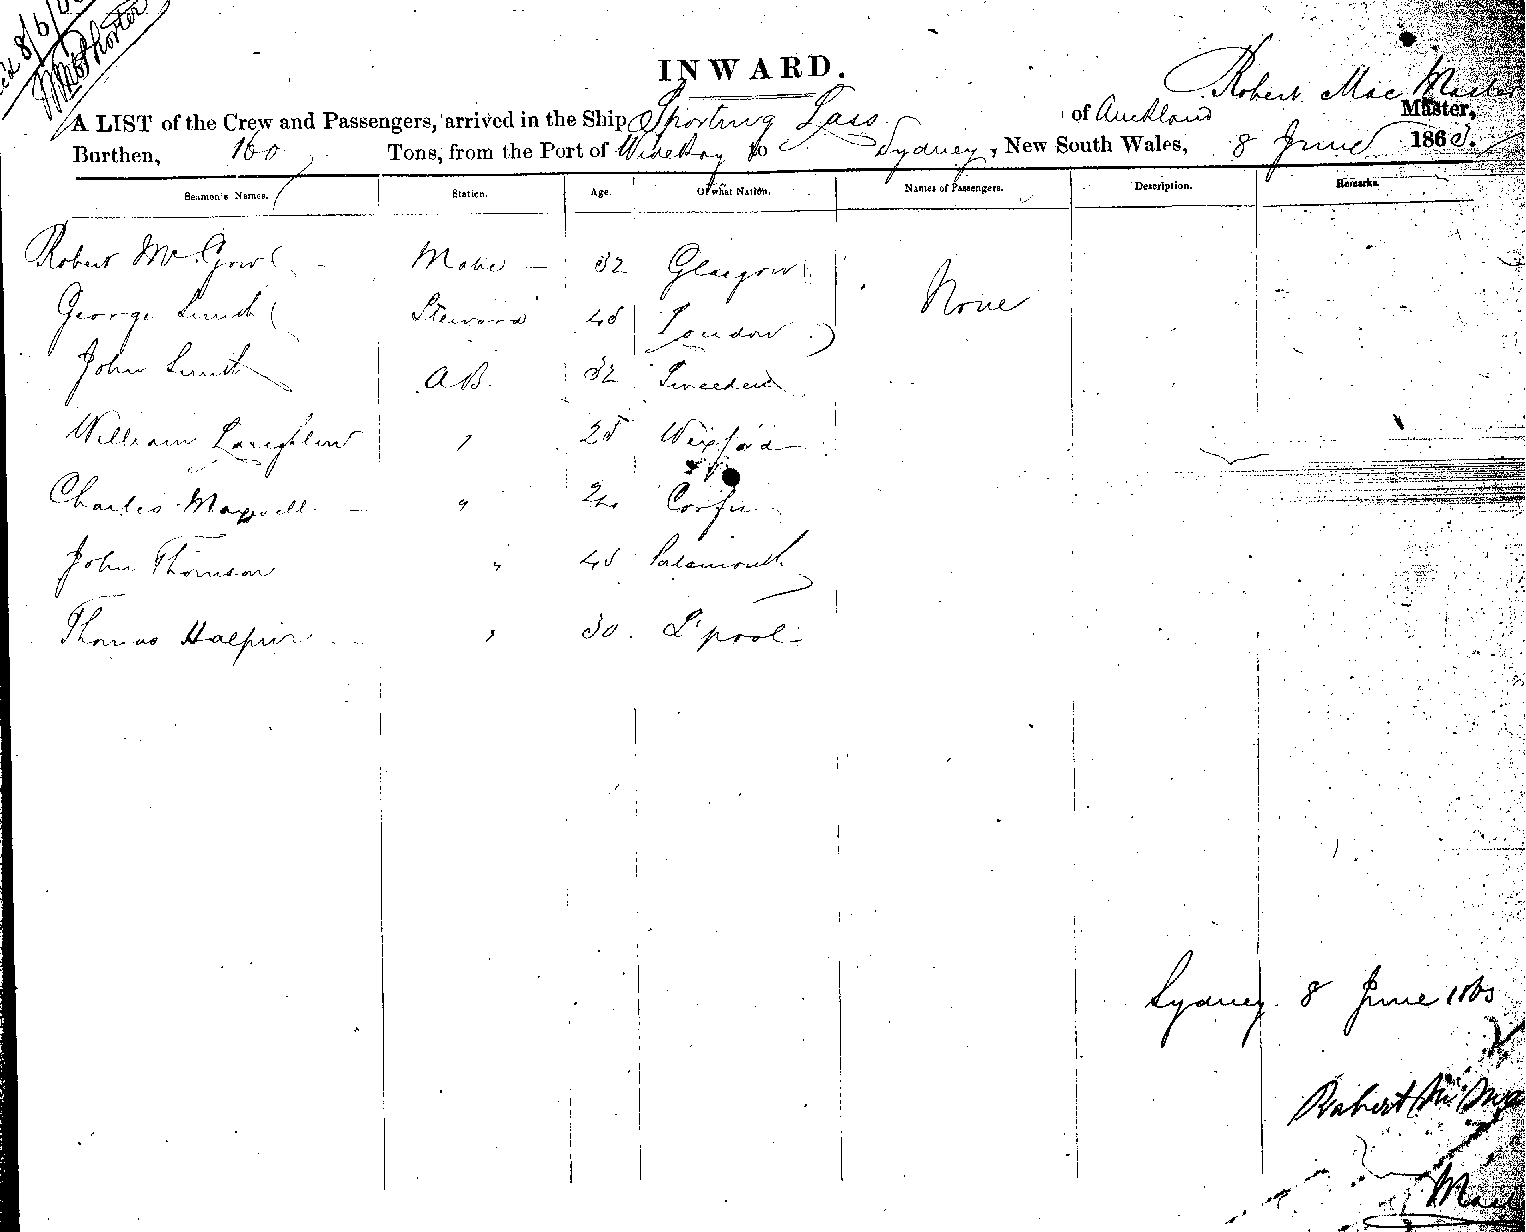 INWARD.
Robert Mac Master
A LIST of the Crew and Passengers, arrived in the Ship Sporting Lass of Auckland Master,
Burthen, 160 Tons, from the Port of Wide Bay to Sydney, New South Wales, 8 June 186
Seamen's Names. Station. Age. Of what Nation. Names of Passengers. Description. Remarks.
Robert Mc Mate 32 Glasgow
George Smith Steward 45 London None
John Smith AB. 32 Sweden
William Laughlin " 25 Wexford
Charles Maxwell " 24 Corfu
John Thomson " 45 Portsmouth
Thomas Halpin " 30 L'pool
Sydney 8 June
Robert